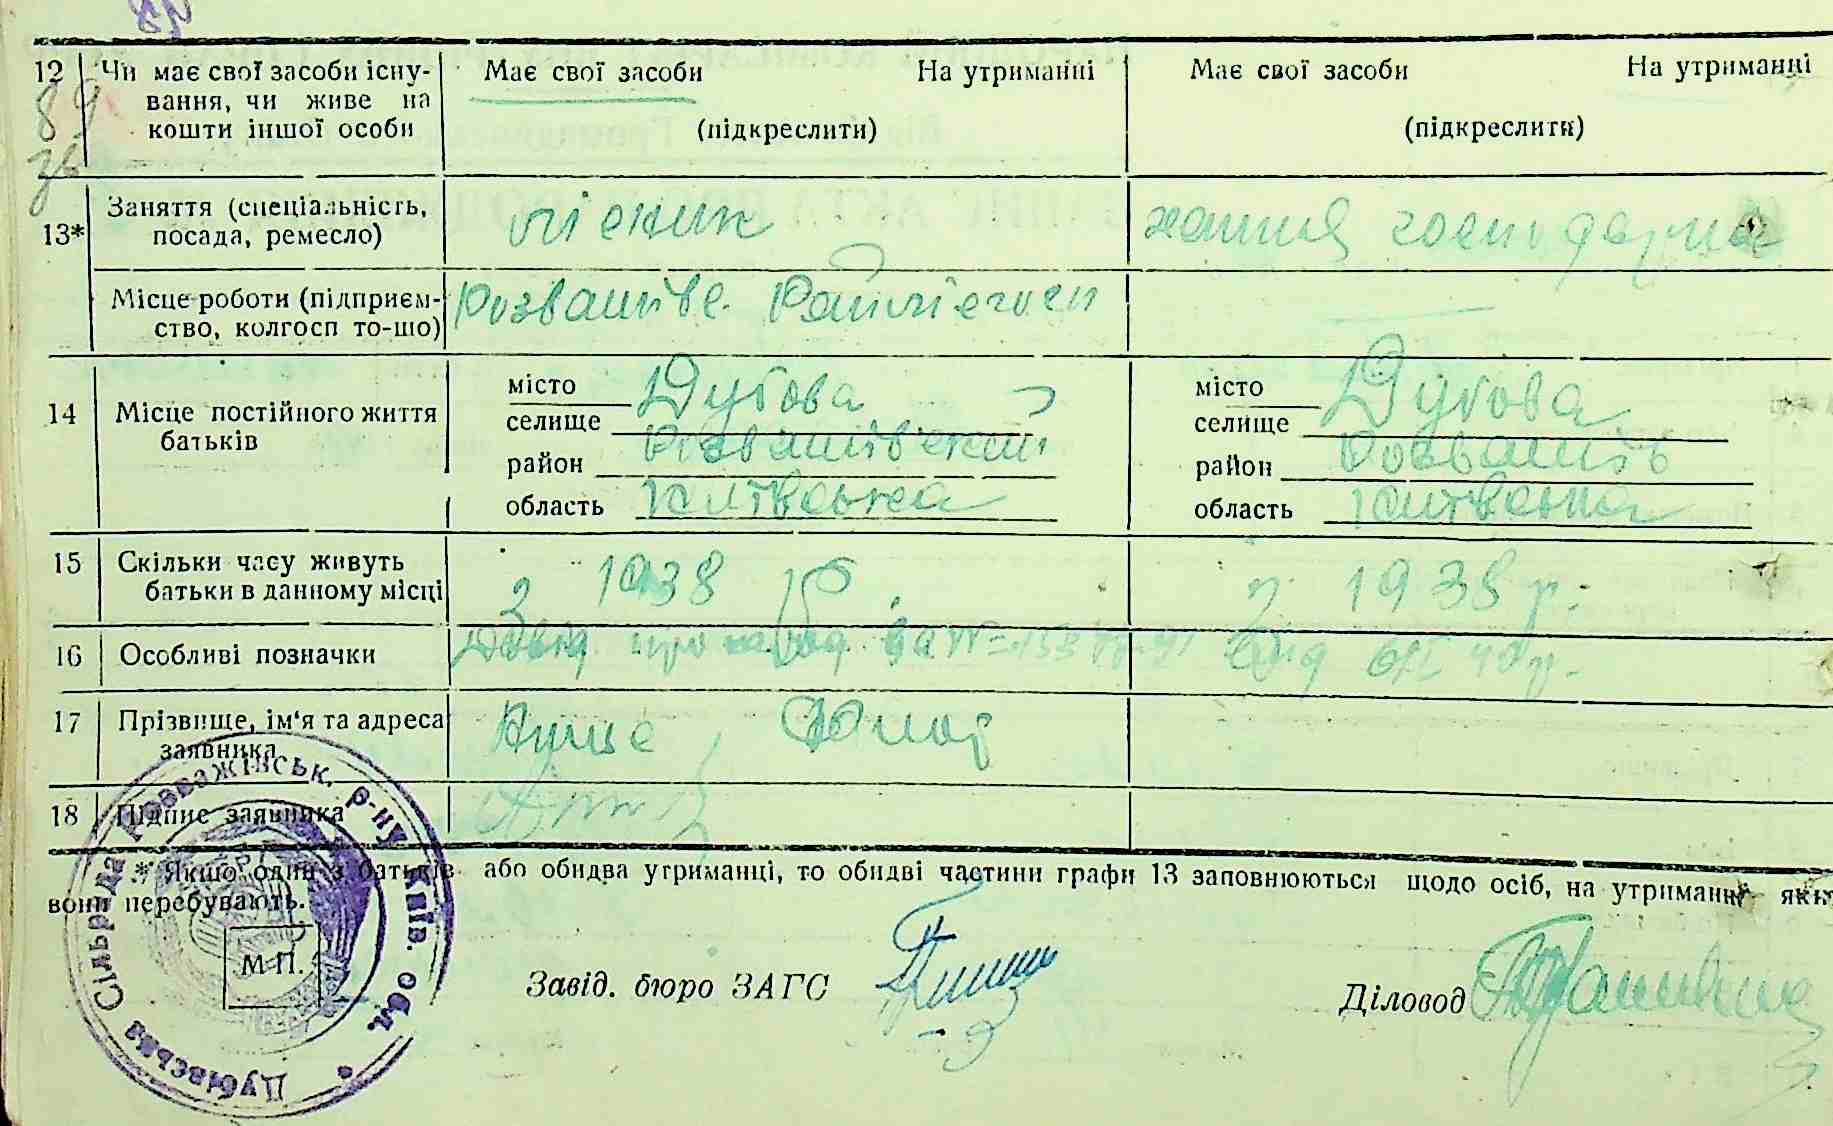 12 Чи має свої засоби існу- Має свої засоби На утриманні Має свої засоби На утриманні
89 вання, чи живе на
кошти іншої особи (підкреслити) (підкреслити)
13* Заняття (спеціальність, лісник хатня господарка
посада, ремесло)
Місце роботи (підприєм-
ство, колгосп то-що)
14 Місце постійного життя місто Дубова місто Дубова
батьків селище селище
район Розважівський район Розважів
область Київська область Київська
15 Скільки часу живуть з 1938 р. з 1938 р.
батьки в данному місці
16 Особливі позначки про за №
17 Прізвище, ім'я та адреса
заявника
18 Підпис заявника
* Якщо один з батьків або обидва утриманці, то обидві частини графи 13 заповнюються щодо осіб, на утриманні яких
вони перебувають.
М.П.
Завід. бюро ЗАГС Діловод
Дубівська Сільрада Розважівськ. р-ну Київ. обл.